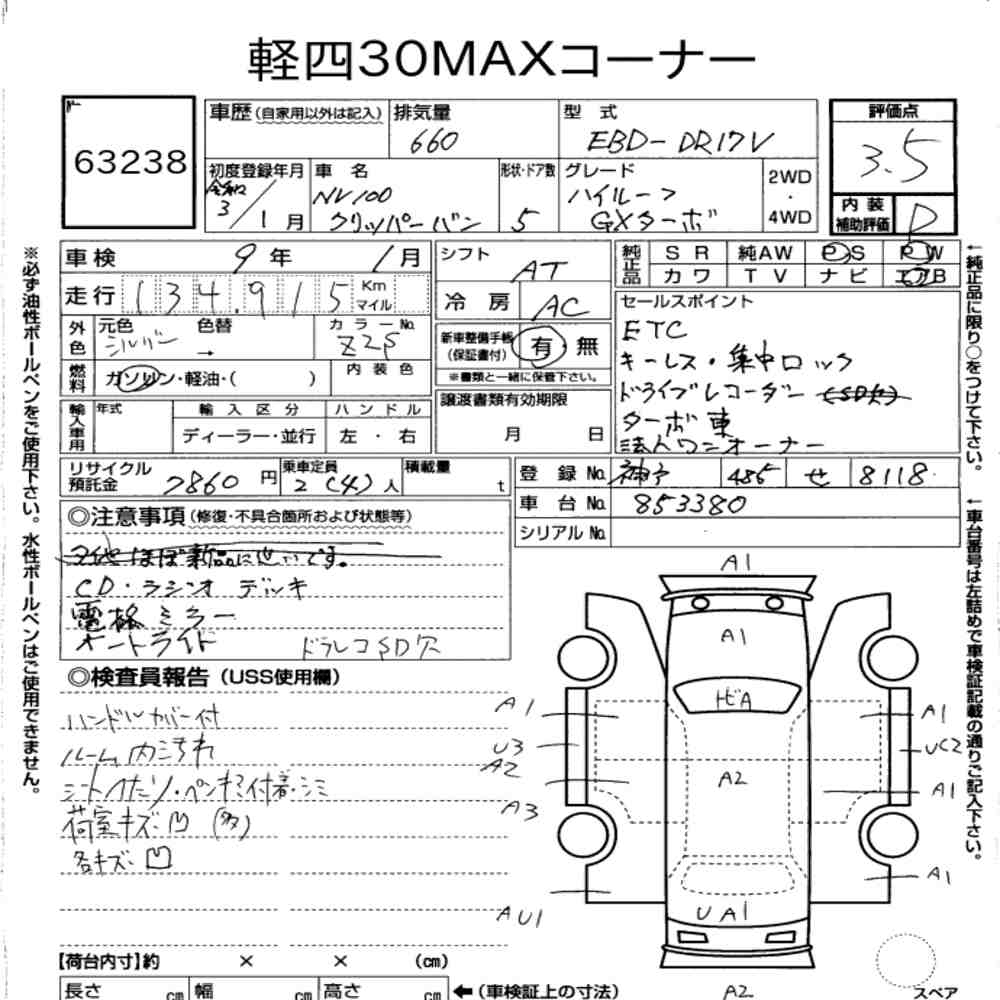 軽四30MAXコーナー
63238
車歴(自家用以外は記入)
排気量
660
型式
EBD-DR17V
評価点
3.5
初度登録年月
令和
3/1月
車名
NV100
クリッパーバン
形状・ドア数
5
グレード
ハイルーフ
GXターボ
2WD
・
4WD
内装
補助評価
D
車検 9年 1月
シフト
AT
純正品
SR 純AW PS PW
カワ TV ナビ エアB
走行 134,915 Km マイル
冷房 AC
セールスポイント
ETC
キーレス・集中ロック
ドライブレコーダー (SD欠)
ターボ車
法人ワンオーナー
外色
元色 シルバー
色替 →
カラーNo. Z2S
新車整備手帳
(保証書付)
有・無
※書類と一緒に保管下さい。
燃料
ガソリン・軽油・( )
内装色
輸入車用
年式
輸入区分
ディーラー・並行
ハンドル
左・右
譲渡書類有効期限
月 日
リサイクル
預託金 7860円
乗車定員
2(4)人
積載量
t
登録No. 485 せ 8118
車台No. 853380
シリアルNo.
◎注意事項(修復・不具合箇所および状態等)
CD・ラジオ デッキ
電格ミラー
オートライト
ドラレコSD欠
◎検査員報告(USS使用欄)
ハンドルカバー付
ルーム内汚れ
シートへたり・ペンキ付着・シミ
荷室キズ凹(多)
各キズ凹
A1
A1
トビA
A1
A1
U3
UC2
A2
A2
A1
A3
A1
AU1
UA1
A2
スペア
【荷台内寸】約 × × (cm)
長さ cm 幅 cm 高さ cm ←(車検証上の寸法)
※必ず油性ボールペンをご使用下さい。水性ボールペンはご使用できません。
←純正品に限り○をつけて下さい。
←車台番号は左詰めで車検証記載の通りご記入下さい。